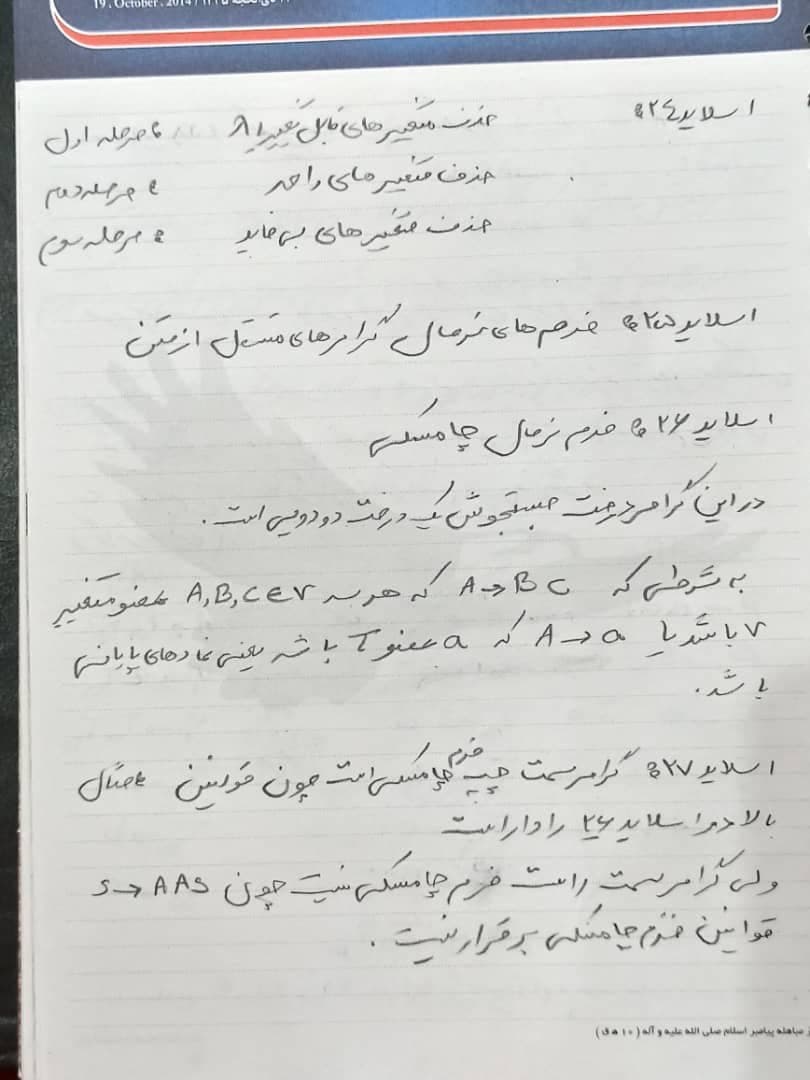 19 . October . 2014 /
اسلاید ۲۴: حذف متغیرهای قابل تغییر با λ : مرحله اول
حذف متغیرهای واحد : مرحله دوم
حذف متغیرهای بی‌فاید : مرحله سوم
اسلاید ۲۵: فرم‌های نرمال گرامرهای مستقل از متن
اسلاید ۲۶: فرم نرمال چامسکی
در این گرامر درخت جستجوش یک درخت دودویی است.
به شرطی که A → B C که هر سه A, B, C ∈ V عضو متغییر
V باشد یا A → a که a عضو T باشد یعنی نمادهای پایانی
باشد.
اسلاید ۲۷: گرامر سمت چپ فرم چامسکی است چون قوانین مثال
بالا در اسلاید ۲۶ را دارا است
ولی گرامر سمت راست فرم چامسکی نیست چون S → AAS
قوانین فرم چامسکی برقرار نیست.
ز مباهله پیامبر اسلام صلی الله علیه و آله (۱۰ ه ق)